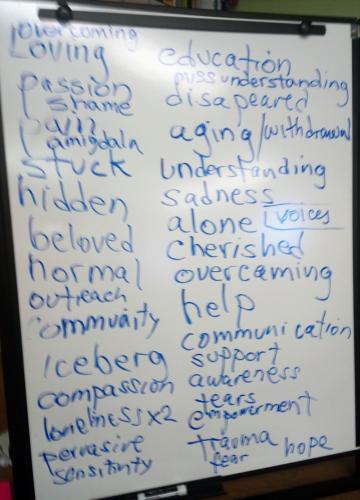 overcoming
Loving
passion
shame
pain
amigdala
stuck
hidden
beloved
normal
outreach
community
iceberg
compassion
loneliness x2
pervasive
sensitivity
education
missunderstanding
disapeared
aging/withdrawal
understanding
sadness
alone voices
cherished
overcoming
help
communication
support
awareness
tears
empowerment
trauma
fear hope